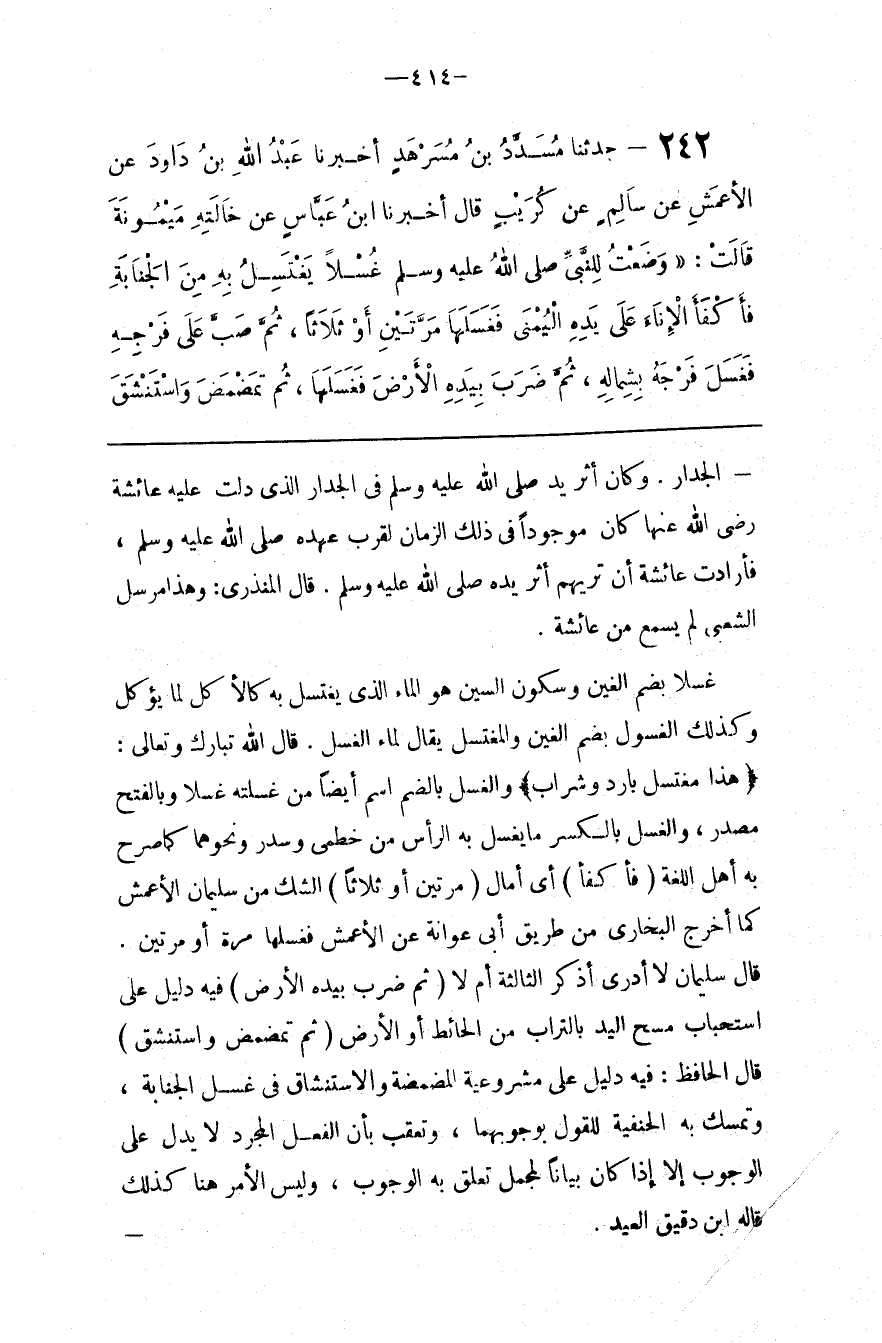 —٤١٤-
٢٤٢ — حدثنا مُسَدَّدُ بنُ مُسَرْهَدٍ أخبرنا عَبْدُ اللهِ بنُ دَاودَ عن
الأعمَشِ عن سَالِمٍ عن كُرَيْبٍ قال أخبرنا ابنُ عَبَّاسٍ عن خَالَتِهِ مَيْمُونَةَ
قَالَتْ : « وَضَعْتُ لِلنَّبيِّ صلى اللهُ عليه وسلم غُسْلاً يَغْتَسِلُ بِهِ مِنَ الْجَنَابَةِ
فأَكْفَأَ الْإِنَاءَ عَلَى يَدِهِ الْيُمْنَى فَغَسَلَهَا مَرَّتَيْنِ أَوْ ثَلَاثَاً ، ثُمَّ صَبَّ عَلَى فَرْجِهِ
فَغَسَلَ فَرْجَهُ بِشِمالِهِ ، ثُمَّ ضَرَبَ بِيَدِهِ الْأَرْضَ فَغَسَلَهَا ، ثُم تمَضْمَضَ وَاسْتَنْشَقَ
— الجدار . وكان أثر يد صلى الله عليه وسلم فى الجدار الذى دلت عليه عائشة
رضى الله عنها كان موجوداً فى ذلك الزمان لقرب عهده صلى الله عليه وسلم ،
فأرادت عائشة أن تريهم أثر يده صلى الله عليه وسلم . قال المنذرى : وهذا مرسل
الشعبى لم يسمع من عائشة .
غسلا بضم الغين وسكون السين هو الماء الذى يغتسل به كالأكل لما يؤكل
وكذلك الغسول بضم الغين والمغتسل يقال لماء الغسل . قال الله تبارك وتعالى :
﴿ هذا مغتسل بارد وشراب﴾ والغسل بالضم اسم أيضاً من غسلته غسلا وبالفتح
مصدر ، والغسل بالكسر مايغسل به الرأس من خطمى وسدر ونحوهما كماصرح
به أهل اللغة ( فأكفأ ) أى أمال ( مرتين أو ثلاثاً ) الشك من سليمان الأعمش
كما أخرج البخارى من طريق أبى عوانة عن الأعمش فغسلها مرة أو مرتين .
قال سليمان لا أدرى أذكر الثالثة أم لا ( ثم ضرب بيده الأرض ) فيه دليل على
استحباب مسح اليد بالتراب من الحائط أو الأرض ( ثم تمضمض واستنشق )
قال الحافظ : فيه دليل على مشروعية المضمضة والاستنشاق فى غسل الجنابة ،
وتمسك به الحنفية للقول بوجوبهما ، وتعقب بأن الفعل المجرد لا يدل على
الوجوب إلا إذا كان بياناً لمجمل تعلق به الوجوب ، وليس الأمر هنا كذلك
قاله ابن دقيق العيد . —